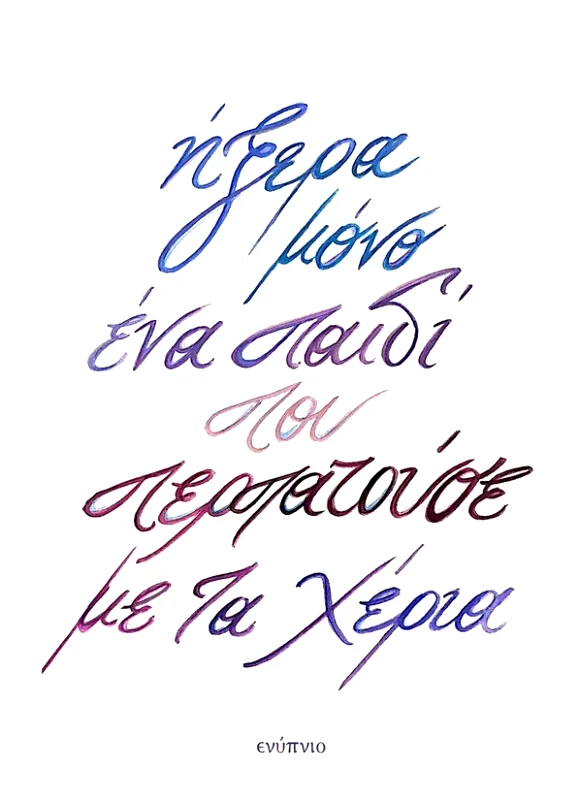 ήξερα
μόνο
ένα παιδί
που
περπατούσε
με τα χέρια
ενύπνιο